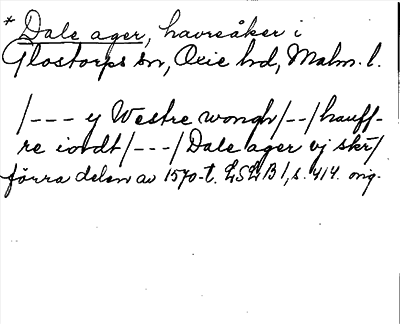 * Dale ager, havreåker i
Glostorps sn, Oxie hd, Malm. l.
/--- y Westre wongh/--/hauff-
re iordt/---/Dale ager vj skr/
förra delen av 1570-t. LSLB 1, s. 414. orig.